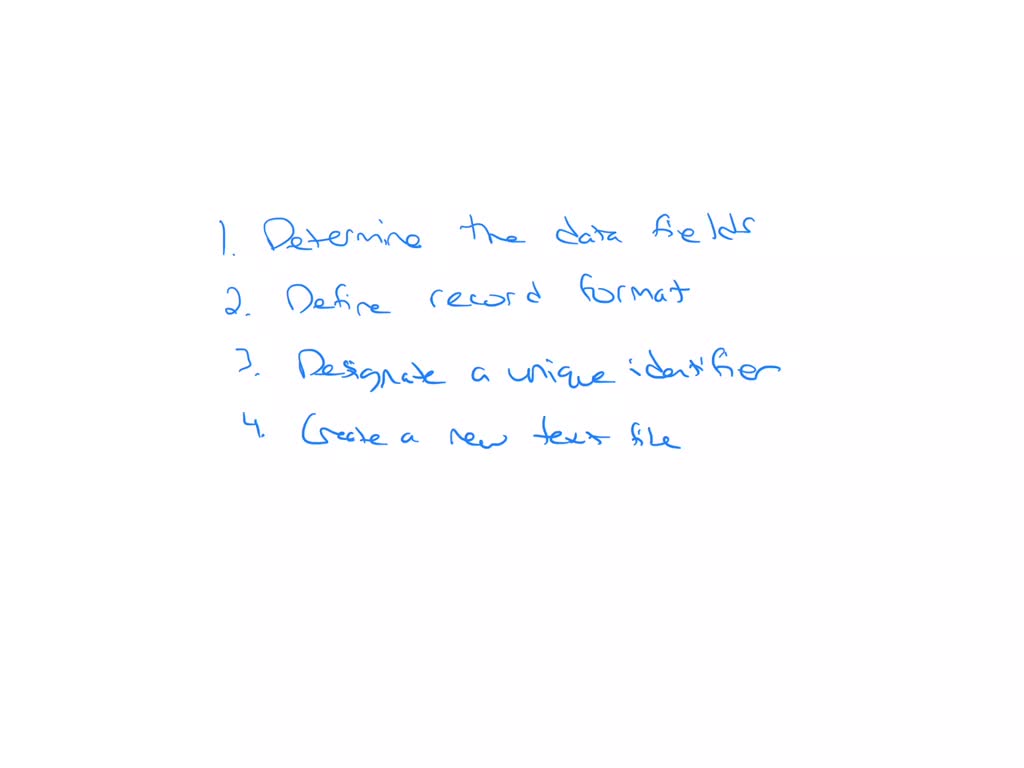 1. Determine the data fields
2. Define record format
3. Designate a unique identifier
4. Create a new text file